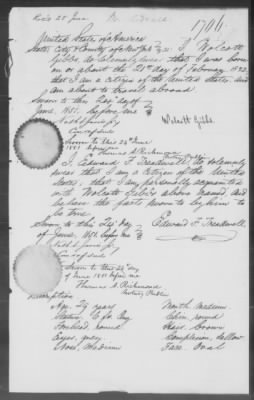 Rec'd 25 June
1706
United States of America
State, City & County of New York SS. I, Wolcott
Gibbs, do solemnly swear that I was born
on or about the 21st day of February 1822,
that I am a Citizen of the United States and
am about to travel abroad
Sworn to this 24 day of
June, 1851. before me
Wolcott Gibbs
Sworn to this 24th June
1851 before me
Thomas A. Richmond
I, Edward F. Treadwell, do solemnly
swear that I am a Citizen of the United
States, that I am personally acquainted
with Wolcott Gibbs above named and
believe the facts sworn to by him to
be true
Sworn to this 24 day
of June, 1851. before me
Edward F. Treadwell
Sworn to this 24th day
of June 1851 before me
Thomas A. Richmond
Notary Public
Description
Age, 29 years
Mouth Medium
Stature, 6 ft
Chin, round
Forehead, round
Hair Brown
Eyes, grey
Complexion, Sallow
Nose, Medium
Face Oval